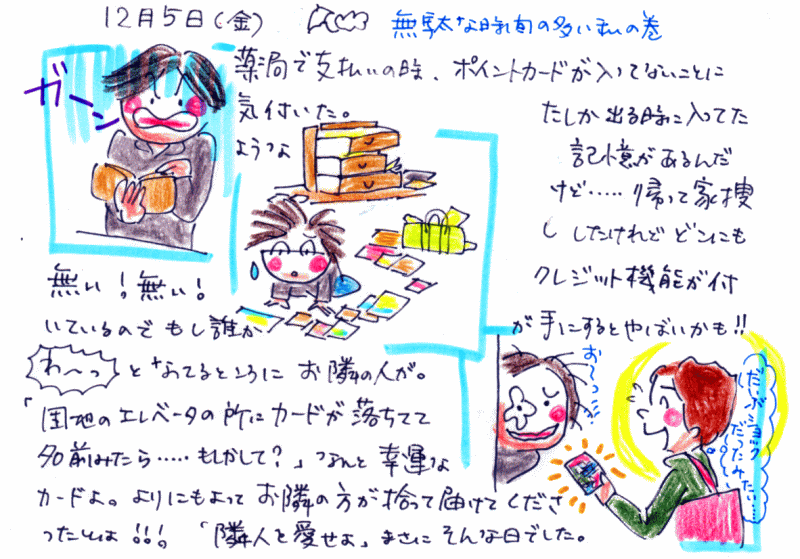 12月5日(金)
無駄な時間の多い私の巻
ガーン
薬局で支払いの時、ポイントカードが入ってないことに
気付いた。
たしか出る時に入ってた
ような
記憶があるんだ
けど……帰って家捜
し したけれど どこにも
無い!無い!
クレジット機能が付
いているので もし誰か
が手にするとやばいかも!!
わ〜っ
となってるところに お隣の人が。
お〜っ!!
「団地のエレベータの所にカードが落ちてて
名前みたら……もしかして?」なんと幸運な
カードよ。よりにもよって お隣の方が拾って届けてくださ
ったとは!!!。「隣人を愛せよ」まさに そんな日でした。
だいぶショック
だったみたい…